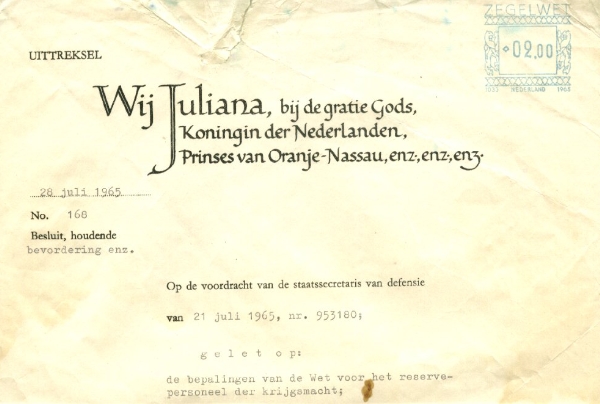 ZEGELWET
02,00
NEDERLAND
UITTREKSEL
Wij Juliana, bij de gratie Gods,
Koningin der Nederlanden,
Prinses van Oranje-Nassau, enz., enz., enz.
28 juli 1965
No. 168
Besluit, houdende
bevordering enz.
Op de voordracht van de staatssecretaris van defensie
van 21 juli 1965, nr. 953180;
gelet op:
de bepalingen van de Wet voor het reserve-
personeel der krijgsmacht;